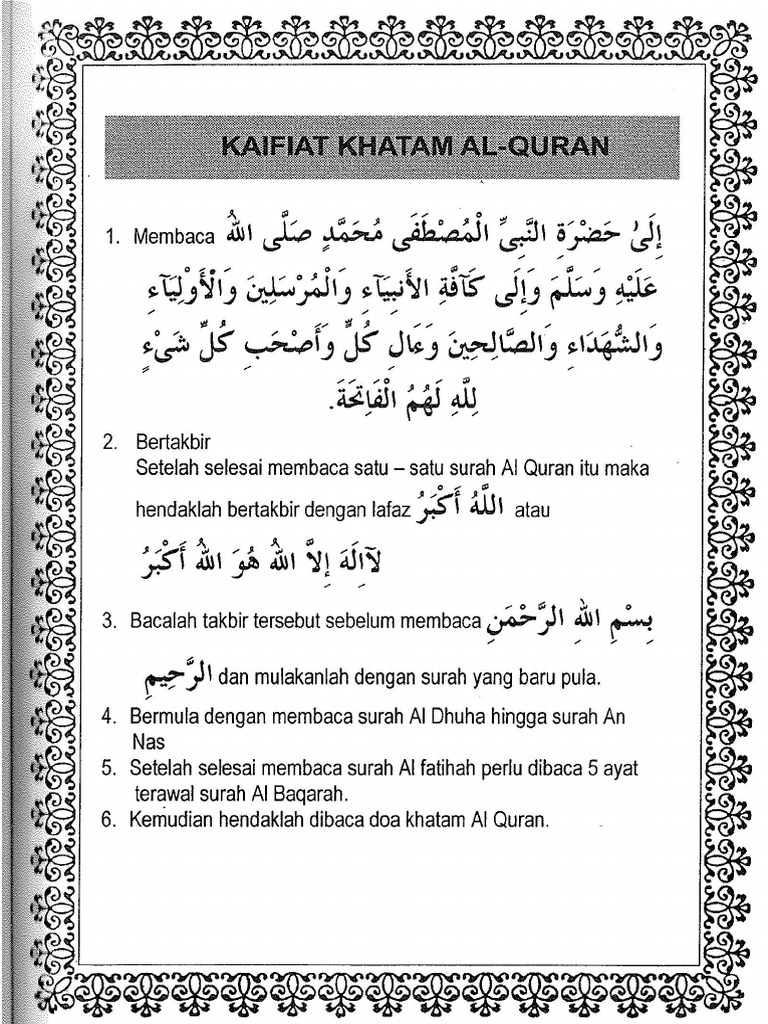 KAIFIAT KHATAM AL-QURAN
1. Membaca إِلَىٰ حَضْرَةِ النَّبِيِّ الْمُصْطَفَى مُحَمَّدٍ صَلَّى اللهُ
عَلَيْهِ وَسَلَّمَ وَإِلَى كَآفَّةِ الأَنبِيَآءِ وَالْمُرْسَلِينَ وَالْأَوْلِيَآءِ
وَالشُّهَدَاءِ وَالصَّالِحِينَ وَءَالِ كُلٍّ وَأَصْحَبِ كُلِّ شَىْءٍ
لِلَّهِ لَهُمُ الْفَاتِحَةَ.
2. Bertakbir
Setelah selesai membaca satu – satu surah Al Quran itu maka
hendaklah bertakbir dengan lafaz اللَّهُ أَكْبَرُ atau
لآاِلَهَ إِلاَّ اللهُ هُوَ اللهُ أَكْبَرُ
3. Bacalah takbir tersebut sebelum membaca بِسْمِ اللهِ الرَّحْمَنِ
الرَّحِيمِ dan mulakanlah dengan surah yang baru pula.
4. Bermula dengan membaca surah Al Dhuha hingga surah An
Nas
5. Setelah selesai membaca surah Al fatihah perlu dibaca 5 ayat
terawal surah Al Baqarah.
6. Kemudian hendaklah dibaca doa khatam Al Quran.